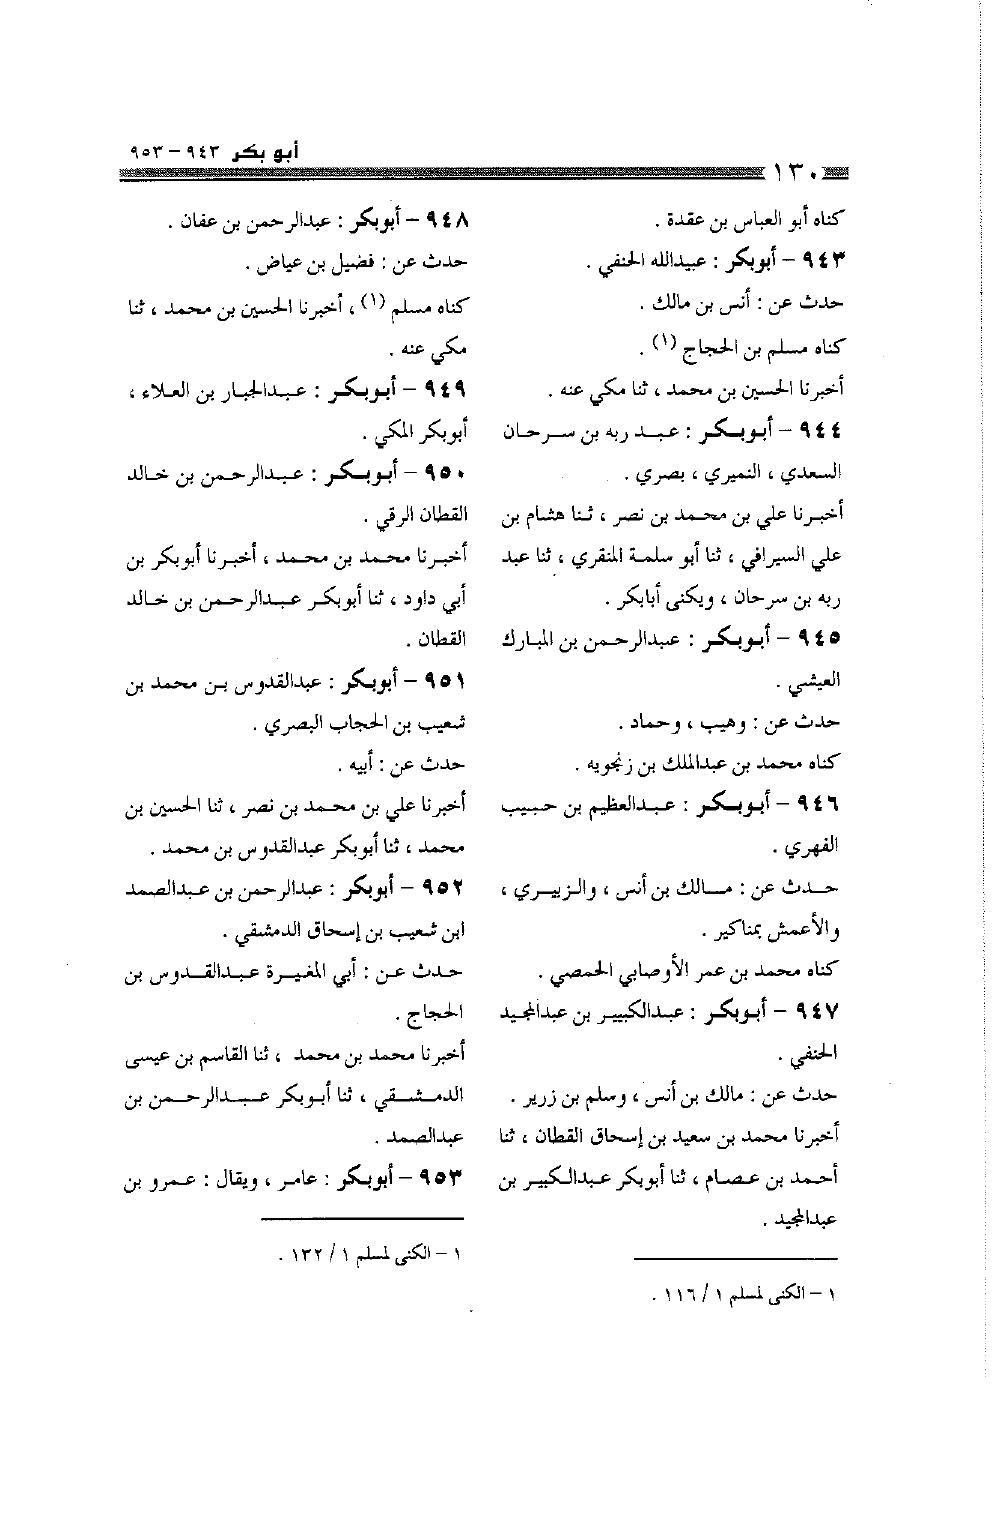 أبو بكر ٩٤٣ – ٩٥٣
١٣٠
كناه أبو العباس بن عقدة .
٩٤٣ – أبوبكر : عبيدالله الحنفي .
حدث عن : أنس بن مالك .
كناه مسلم بن الحجاج (١) .
أخبرنا الحسين بن محمد ، ثنا مكي عنه .
٩٤٤ – أبوبكر : عبد ربه بن سرحان
السعدي ، النميري ، بصري .
أخبرنا علي بن محمد بن نصر ، ثنا هشام بن
علي السيرافي ، ثنا أبو سلمة المنقري ، ثنا عبد
ربه بن سرحان ، ويكنى أبابكر .
٩٤٥ – أبوبكر : عبدالرحمن بن المبارك
العيشي .
حدث عن : وهيب ، وحماد .
كناه محمد بن عبدالملك بن زنجويه .
٩٤٦ – أبوبكر : عبدالعظيم بن حبيب
الفهري .
حدث عن : مالك بن أنس ، والزبيري ،
والأعمش بمناكير .
كناه محمد بن عمر الأوصابي الحمصي .
٩٤٧ – أبوبكر : عبدالكبير بن عبدالمجيد
الحنفي .
حدث عن : مالك بن أنس ، وسلم بن زرير .
أخبرنا محمد بن سعيد بن إسحاق القطان ، ثنا
أحمد بن عصام ، ثنا أبوبكر عبدالكبير بن
عبدالمجيد .
١ – الكنى لمسلم ١ / ١١٦ .
٩٤٨ – أبوبكر : عبدالرحمن بن عفان .
حدث عن : فضيل بن عياض .
كناه مسلم (١) ، أخبرنا الحسين بن محمد ، ثنا
مكي عنه .
٩٤٩ – أبوبكر : عبدالجبار بن العلاء ،
أبوبكر المكي .
٩٥٠ – أبوبكر : عبدالرحمن بن خالد
القطان الرقي .
أخبرنا محمد بن محمد ، أخبرنا أبوبكر بن
أبي داود ، ثنا أبوبكر عبدالرحمن بن خالد
القطان .
٩٥١ – أبوبكر : عبدالقدوس بن محمد بن
شعيب بن الحجاب البصري .
حدث عن : أبيه .
أخبرنا علي بن محمد بن نصر ، ثنا الحسين بن
محمد ، ثنا أبوبكر عبدالقدوس بن محمد .
٩٥٢ – أبوبكر : عبدالرحمن بن عبدالصمد
ابن شعيب بن إسحاق الدمشقي .
حدث عن : أبي المغيرة عبدالقدوس بن
الحجاج .
أخبرنا محمد بن محمد ، ثنا القاسم بن عيسى
الدمشقي ، ثنا أبوبكر عبدالرحمن بن
عبدالصمد .
٩٥٣ – أبوبكر : عامر ، ويقال : عمرو بن
١ – الكنى لمسلم ١ / ١٣٢ .